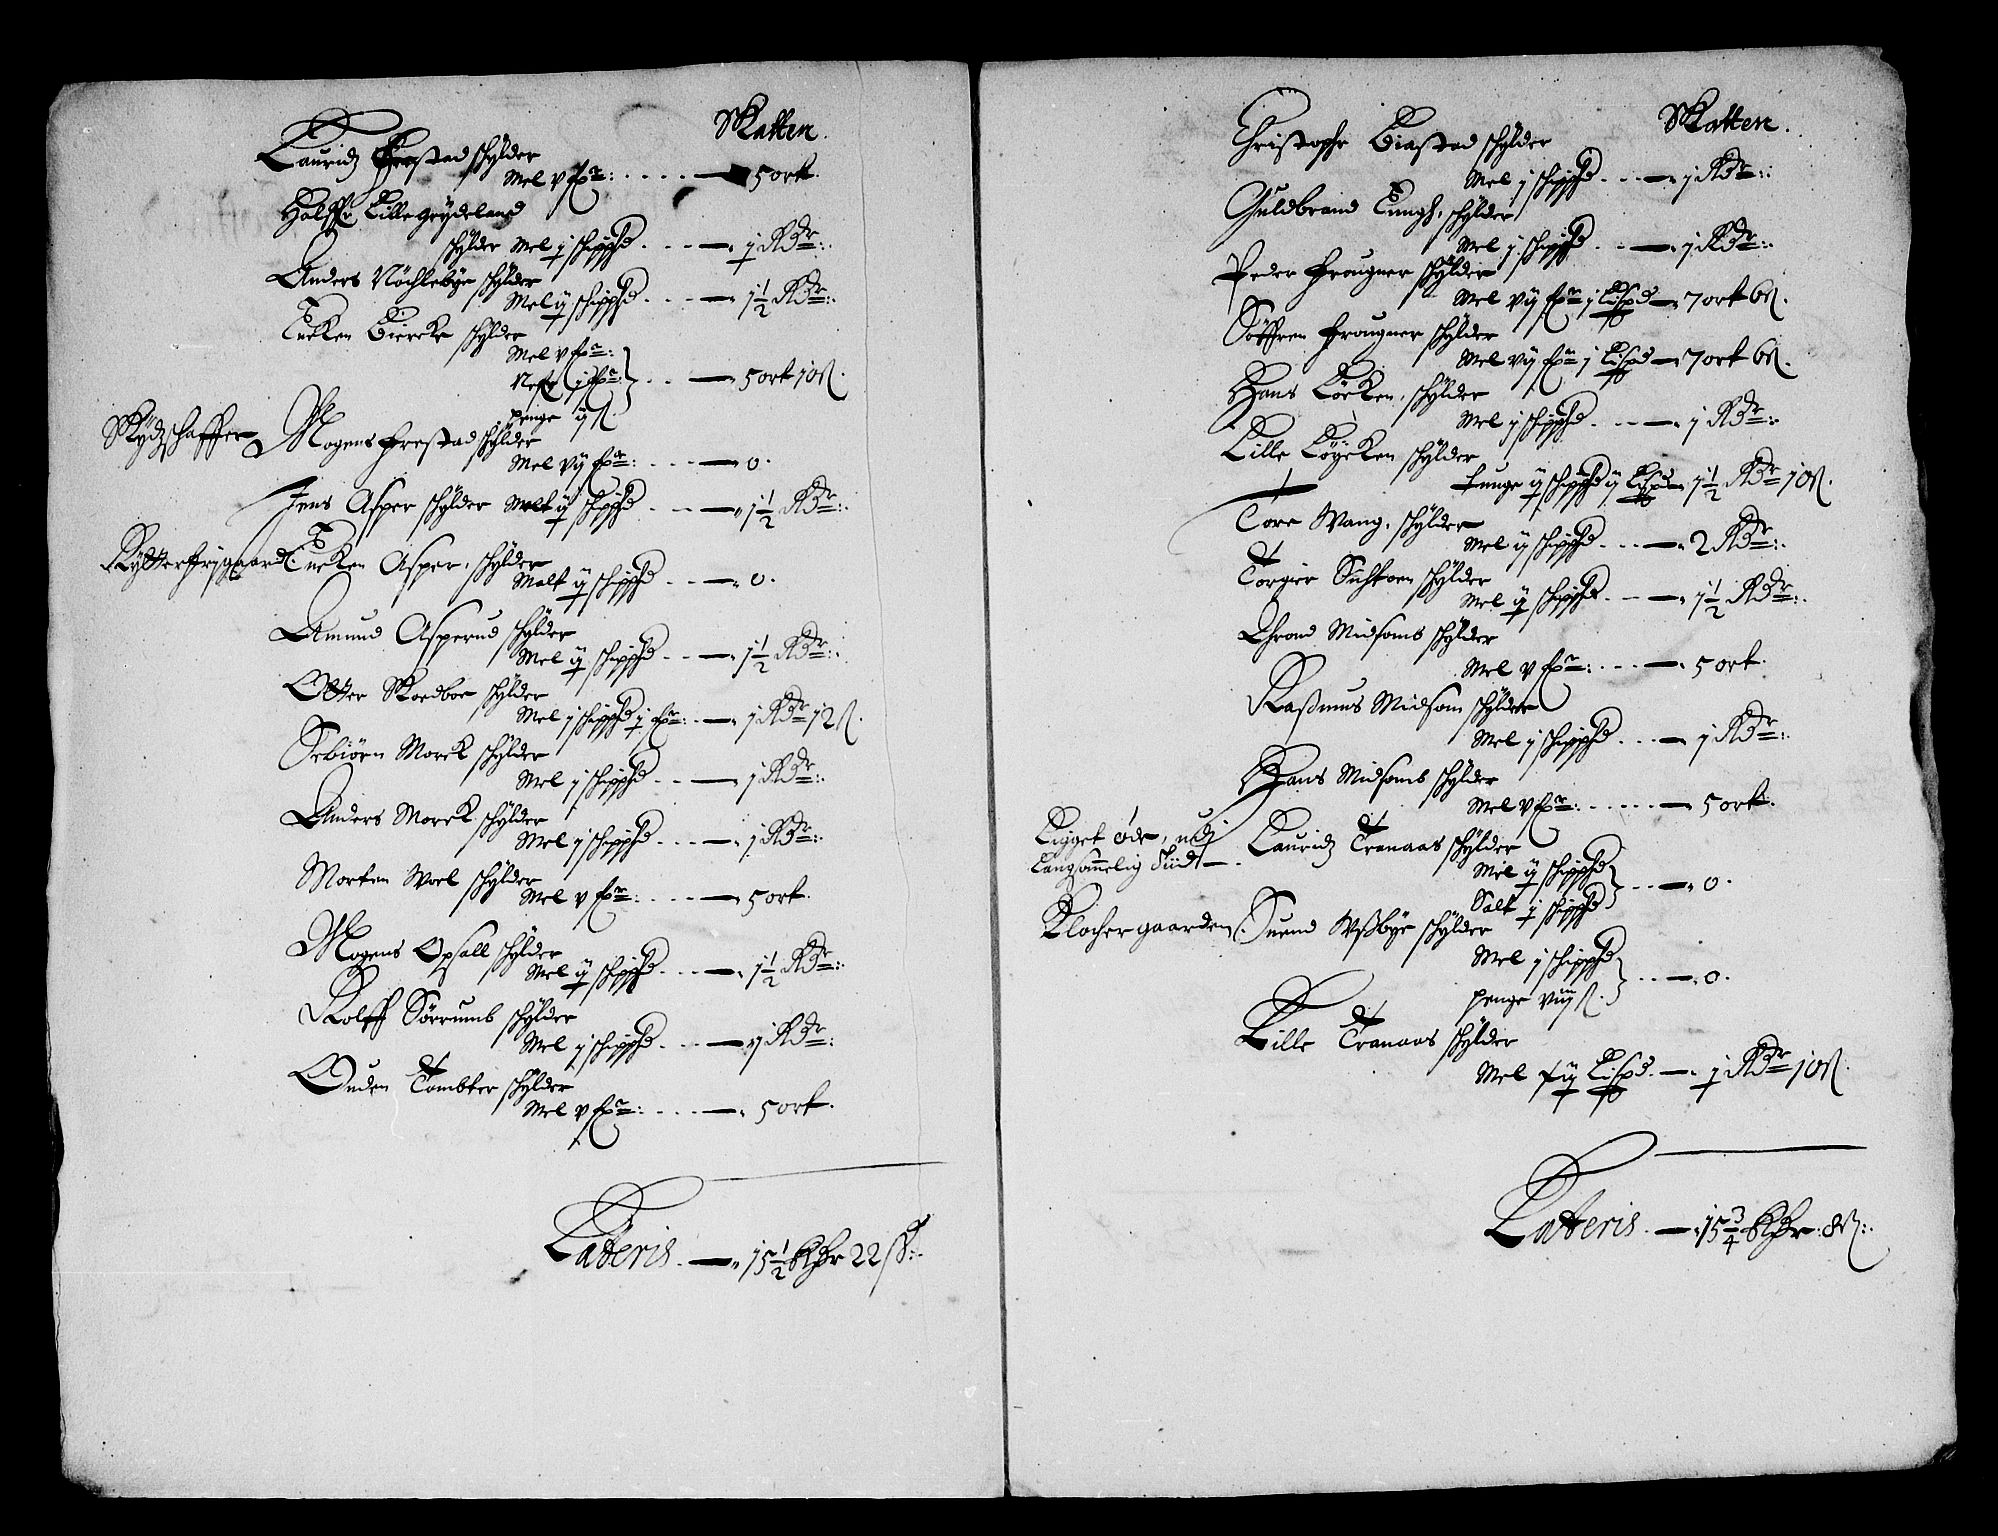 Skatten.
Lauridz Frestad schylder
Mel v fr: . . . . — 5 ort.
Halffr Lille Grydeland
schylder Mel j schippd . . . — j Rdr:
Anders Nöchlebye schylder
Mel ij schippd . . . — 1½ Rdr:
Tuchen Biercke schylder
Mel v fr:
Nefr j fr: } . . — 5 ort 10 s.
penge ij s.
Skydzschaffer Mogens Frestad schylder
Mel vij fr: . . . — 0.
Jens Asper schylder Malt ij schippd . . . — 1½ Rdr:
Rytterfrjgaard Tuchen Asper, schylder
Malt ij schippd . . . — 0.
Amund Asperud schylder
Mel ij schippd . . — 1½ Rdr:
Otter Skoedboe schylder
Mel j schippd j fr: . — j Rdr 12 s.
Sebiörn Morck schylder
Mel j schippd . . . — j Rdr:
Anders Morck schylder
Mel j schippd . . . — j Rdr:
Morten Woel schylder
Mel v fr: . . . . — 5 ort.
Mogens Opsall schylder
Mel ij schippd . . . — 1½ Rdr:
Rolff Sörrumb schylder
Mel j schippd . . . — j Rdr:
Ouden Tombter schylder
Mel v fr: . . . . — 5 ort.
Latteris. — 15½ Rdr 22 s:
Skatten.
Christopher Biastad schylder
Mel j schippd . . . — j Rdr:
Guldbrand Tungh, schylder
Mel j schippd . . . — j Rdr:
Peder Frougner schylder
Mel vij fr j Lispd — 7 ort 6 s.
Söffren Frougner schylder
Mel vij fr j Lispd — 7 ort 6 s.
Hans Löcken, schylder
Mel j schippd . . . — j Rdr:
Lille Löycken schylder
Tunge ij schippd ij Lispd — 1½ Rdr 10 s.
Tore Wang, schylder
Mel ij schippd . . . — 2 Rdr:
Torgier Sichtoen schylder
Mel ij schippd . . — 1½ Rdr:
Thrond Midsoms schylder
Mel v fr: . . . — 5 ort.
Rasmus Midsom schylder
Mel j schippd . . . — j Rdr:
Hans Midsoms schylder
Mel v fr: . . . . — 5 ort.
Ligget öde, udj Lauridz Tranaas schylder
Langsommelig Tiidt — . Mel ij schippd
Salt j schippd } . . . — 0.
Klochergaarden. Suend Wssbye schylder
Mel j schippd
penge viij s. } . . — . 0.
Lille Tranaas schylder
Mel ij Lispd . — . j Rdr 10 s.
Latteris. — 15¾ Rdr: 8 s: